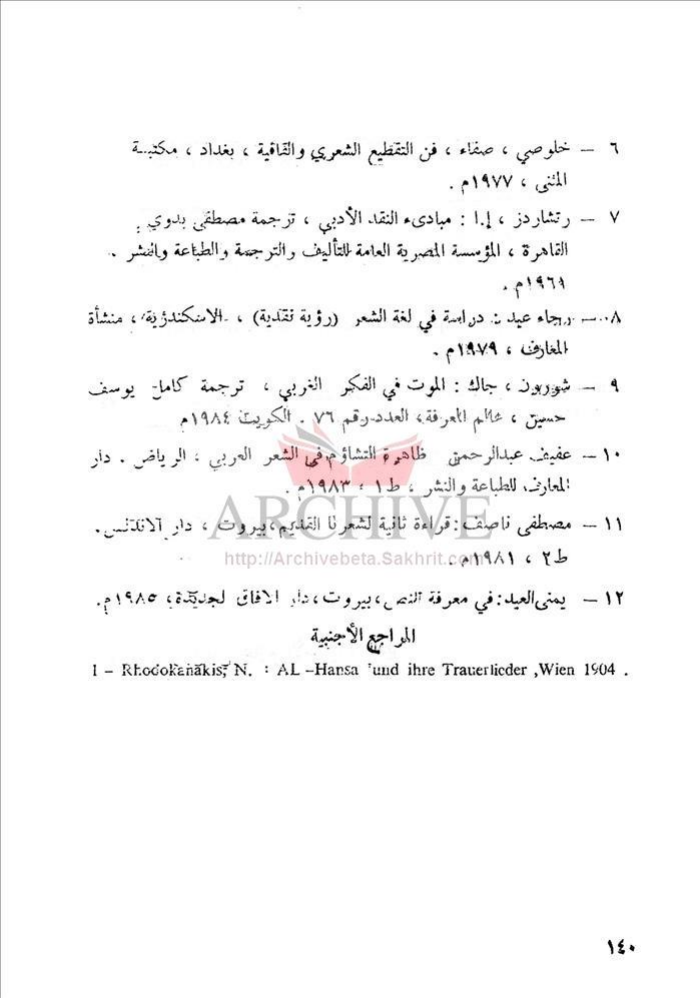 ٦ – خلوصي ، صفاء ، فن التقطيع الشعري والقافية ، بغداد ، مكتبة
المثنى ، ١٩٧٧م .
٧ – رتشاردز ، إ.ا : مبادىء النقد الأدبي ، ترجمة مصطفى بدوي .
القاهرة ، المؤسسة المصرية العامة للتأليف والترجمة والطباعة والنشر .
١٩٦١م .
٨ – رجاء عيد : دراسة في لغة الشعر (رؤية نقدية) ، الاسكندرية ، منشأة
المعارف ، ١٩٧٩م .
٩ – شورون ، جاك : الموت في الفكر الغربي ، ترجمة كامل يوسف
حسين ، عالم المعرفة ، العدد رقم ٧٦ . الكويت ١٩٨٤م
١٠ – عفيف عبدالرحمن ظاهرة التشاؤم في الشعر العربي ، الرياض . دار
المعارف للطباعة والنشر ، ط١ ، ١٩٨٣م .
ARCHIVE
١١ – مصطفى ناصف : قراءة ثانية لشعرنا القديم ، بيروت ، دار الاندلس .
http://Archivebeta.Sakhrit.com
ط٢ ، ١٩٨١م .
١٢ – يمنى العيد : في معرفة النص ، بيروت ، دار الافاق لجديدة ، ١٩٨٥م .
المراجع الأجنبية
1 – Rhodokanakis, N. : AL –Hansa und ihre Trauerlieder ,Wien 1904 .
١٤٠